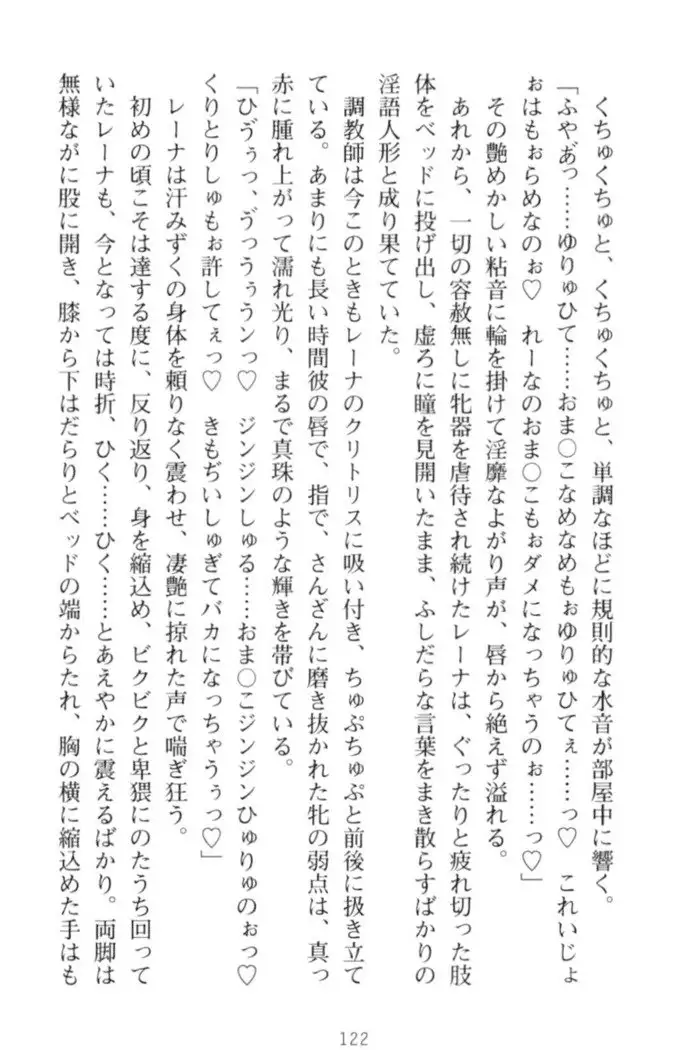 くちゅくちゅと、くちゅくちゅと、単調なほどに規則的な水音が部屋中に響く。
「ふやぁ゙っ……ゆりゅひて……おま○こなめなめもぉゆりゅひてぇ……っ♡　これいじょ
ぉはもぉらめなのぉ♡　れーなのおま○こもぉダメになっちゃうのぉ……っ♡」
その艶めかしい粘音に輪を掛けて淫靡なよがり声が、唇から絶えず溢れる。
あれから、一切の容赦無しに牝器を虐待され続けたレーナは、ぐったりと疲れ切った肢
体をベッドに投げ出し、虚ろに瞳を見開いたまま、ふしだらな言葉をまき散らすばかりの
淫語人形と成り果てていた。
調教師は今このときもレーナのクリトリスに吸い付き、ちゅぷちゅぷと前後に扱き立て
ている。あまりにも長い時間彼の唇で、指で、さんざんに磨き抜かれた牝の弱点は、真っ
赤に腫れ上がって濡れ光り、まるで真珠のような輝きを帯びている。
「ひゔぅっ、ゔっうぅうンっ♡　ジンジンしゅる……おま○こジンジンひゅりゅのぉっ♡
くりとりしゅもぉ許してぇっ♡　きもぢいしゅぎてバカになっちゃうぅっ♡」
レーナは汗みずくの身体を頼りなく震わせ、凄艶に掠れた声で喘ぎ狂う。
初めの頃こそは達する度に、反り返り、身を縮込め、ビクビクと卑猥にのたうち回って
いたレーナも、今となっては時折、ひく……ひく……とあえやかに震えるばかり。両脚は
無様ながに股に開き、膝から下はだらりとベッドの端からたれ、胸の横に縮込めた手はも
122